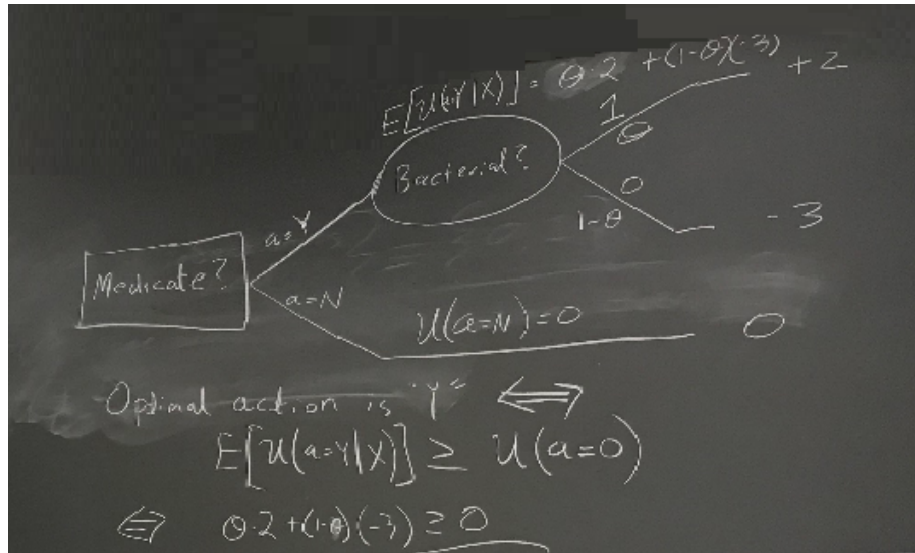 E[U(a=Y|X)] = θ·2 + (1-θ)(-3)
+2
1
θ
Bacterial?
0
1-θ
-3
a=Y
Medicate?
a=N
U(a=N)=0
0
Optimal action is "Y" ⟺
E[U(a=Y|X)] ≥ U(a=0)
⟺ θ·2+(1-θ)·(-3) ≥ 0